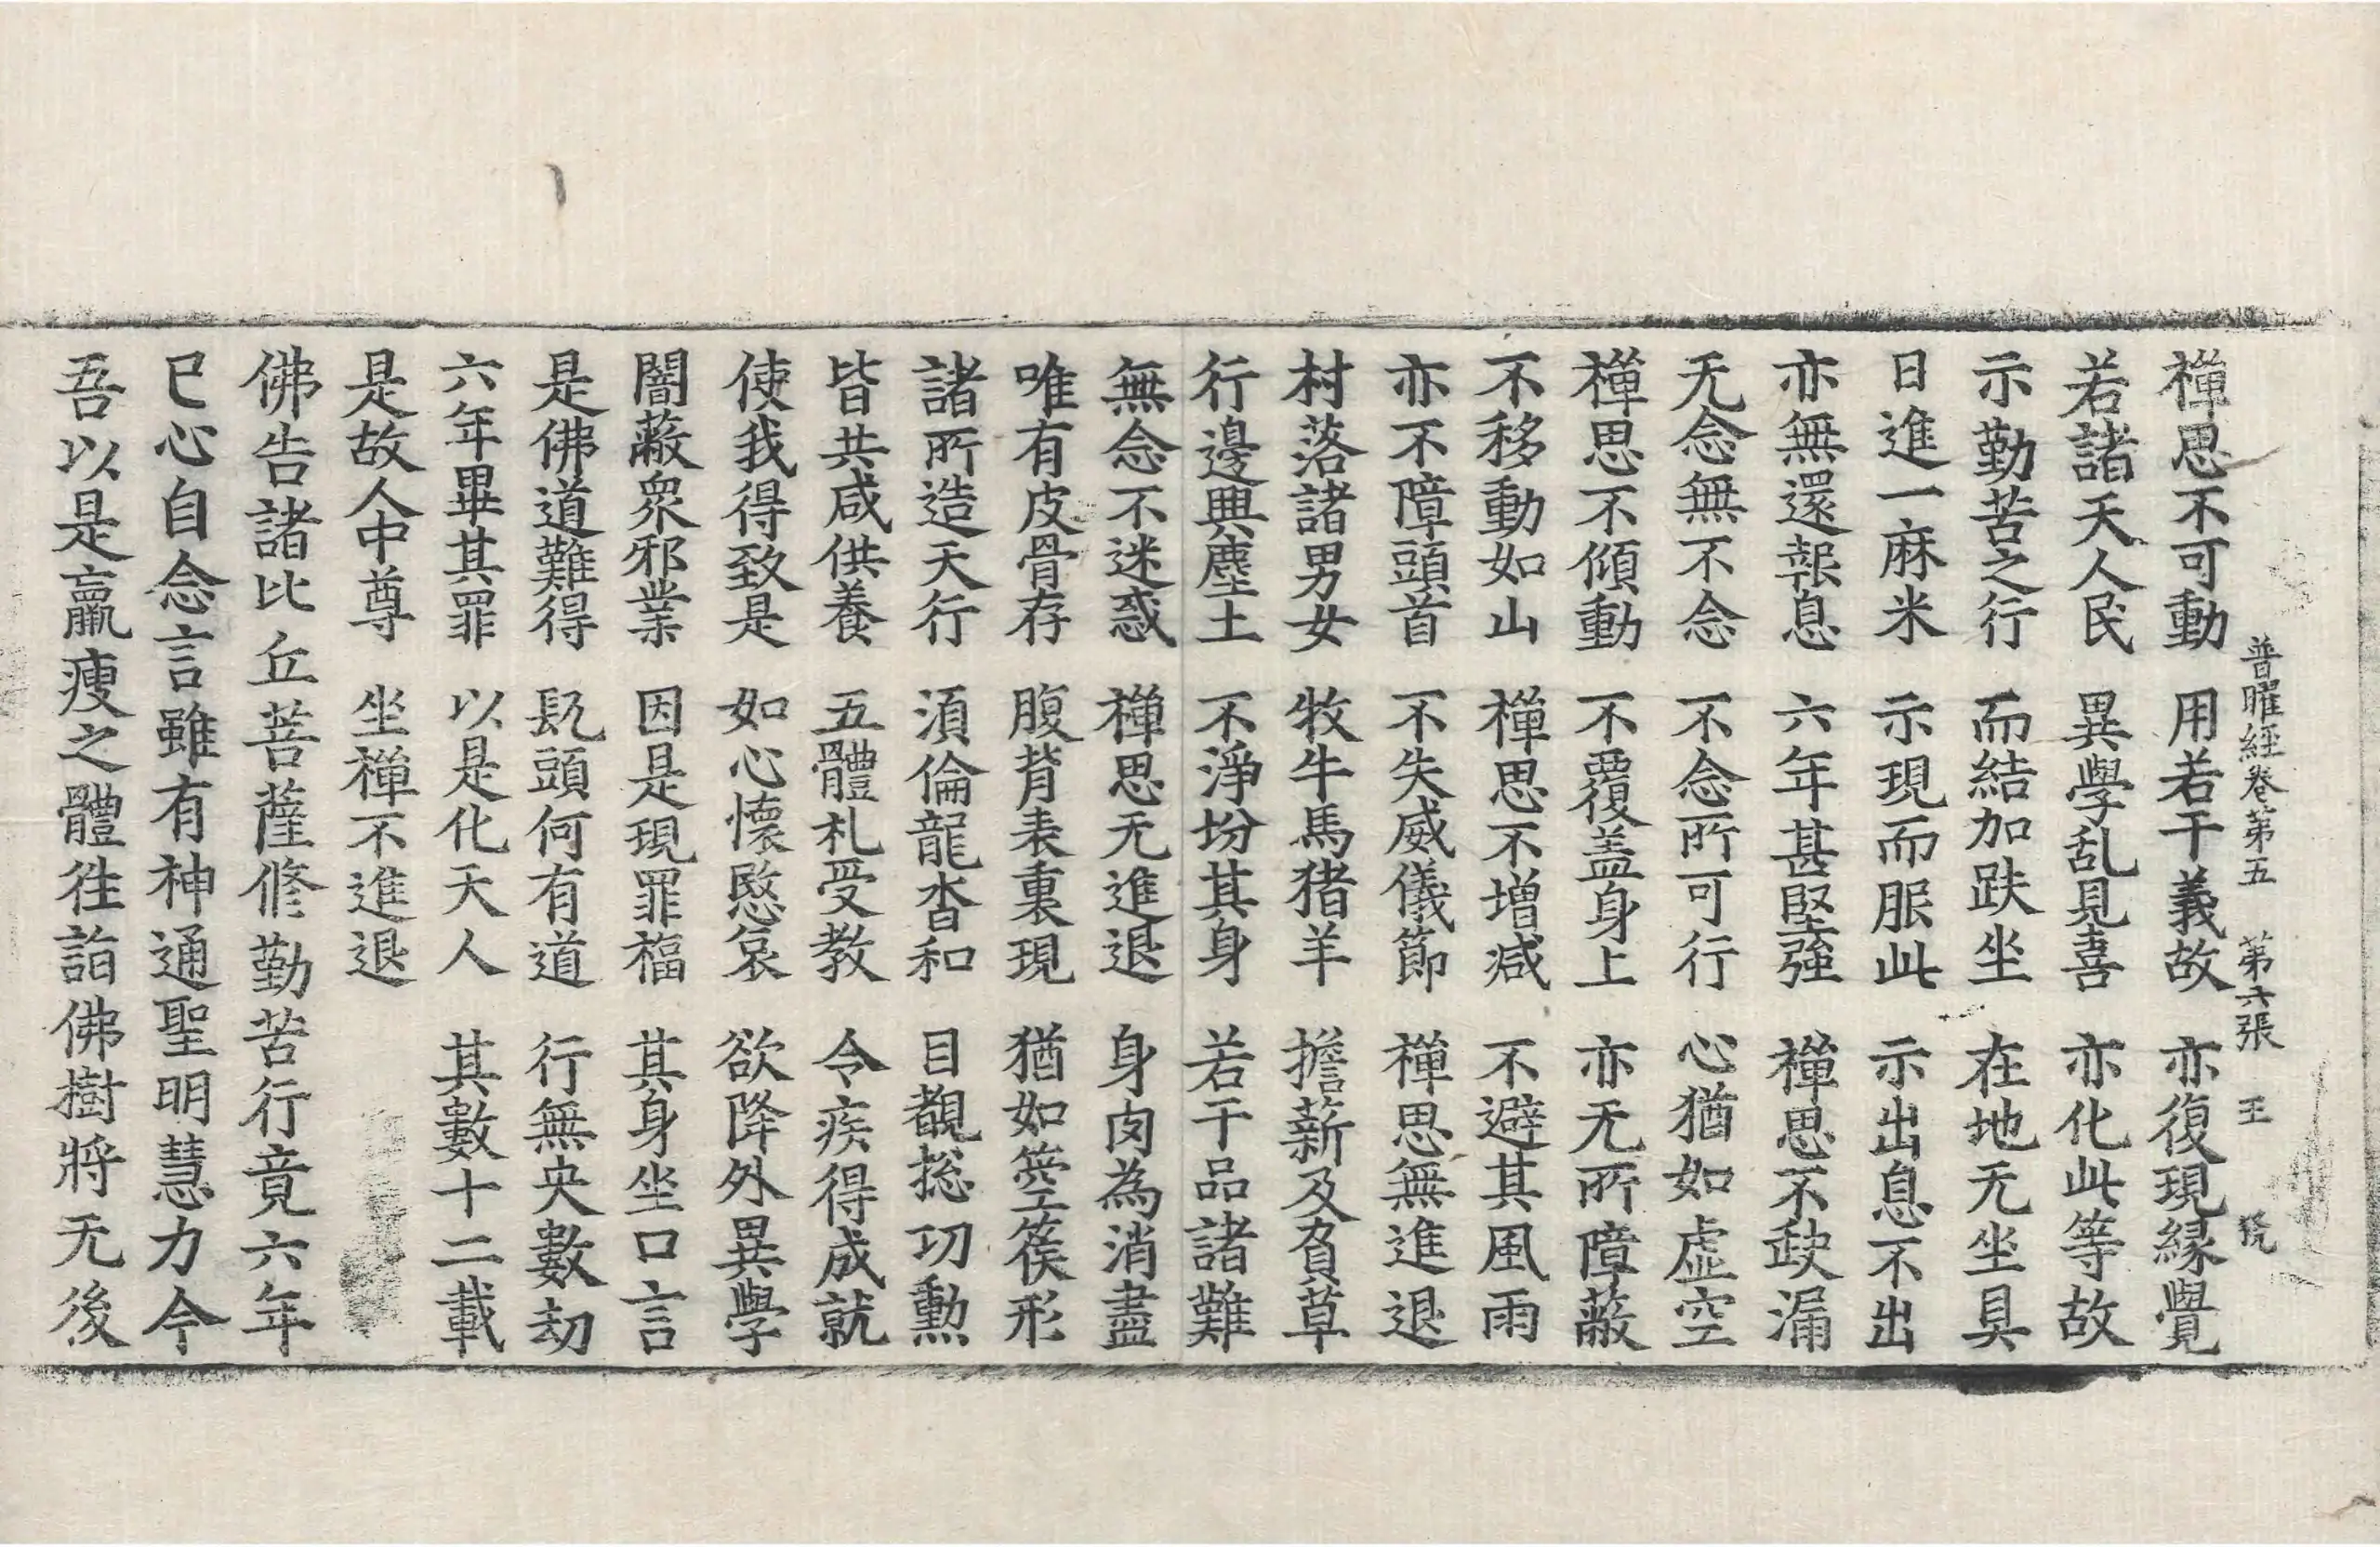 普曜經卷第五　第六張　王　號
禪思不可動　用若干義故　亦復現緣覺
若諸天人民　異學乱見喜　亦化此等故
示勤苦之行　而結加趺坐　在地无坐具
日進一麻米　示現而服此　示出息不出
亦無還報息　六年甚堅強　禪思不缺漏
无念無不念　不念所可行　心猶如虛空
禪思不傾動　不覆盖身上　亦无所障蔽
不移動如山　禪思不增減　不避其風雨
亦不障頭首　不失威儀節　禪思無進退
村落諸男女　牧牛馬猪羊　擔薪及負草
行邊興塵土　不淨坋其身　若干品諸難
無念不迷惑　禪思无進退　身肉為消盡
唯有皮骨存　腹背表裏現　猶如箜篌形
諸所造天行　湏倫龍沓和　目覩揔功勲
皆共咸供養　五體礼受教　令疾得成就
使我得致是　如心懷愍哀　欲降外異學
闇蔽衆邪業　因是現罪福　其身坐口言
是佛道難得　髡頭何有道　行無央數劫
六年畢其罪　以是化天人　其數十二載
是故人中尊　坐禪不進退
佛告諸比丘菩薩修勤苦行竟六年
已心自念言雖有神通聖明慧力今
吾以是羸瘦之體往詣佛樹將无後